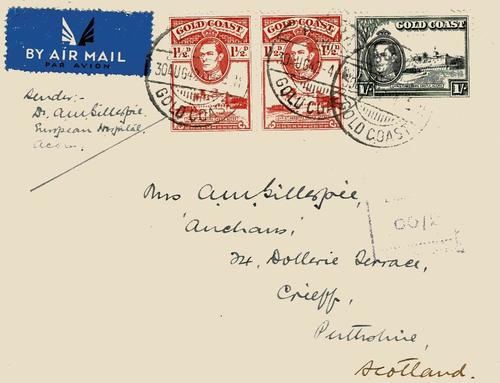 BY AIR MAIL
PAR AVION
GOLD COAST
1½D
GOLD COAST
1½D
GOLD COAST
1/-
1/-
30 AUG
GOLD COAST
GOLD COAST
Sender:-
Dr. A.M. Gillespie.
European Hospital.
Accra.
Mrs A.M. Gillespie,
'Anchans',
74, Dollerie Terrace,
Crieff,
Perthshire,
Scotland.